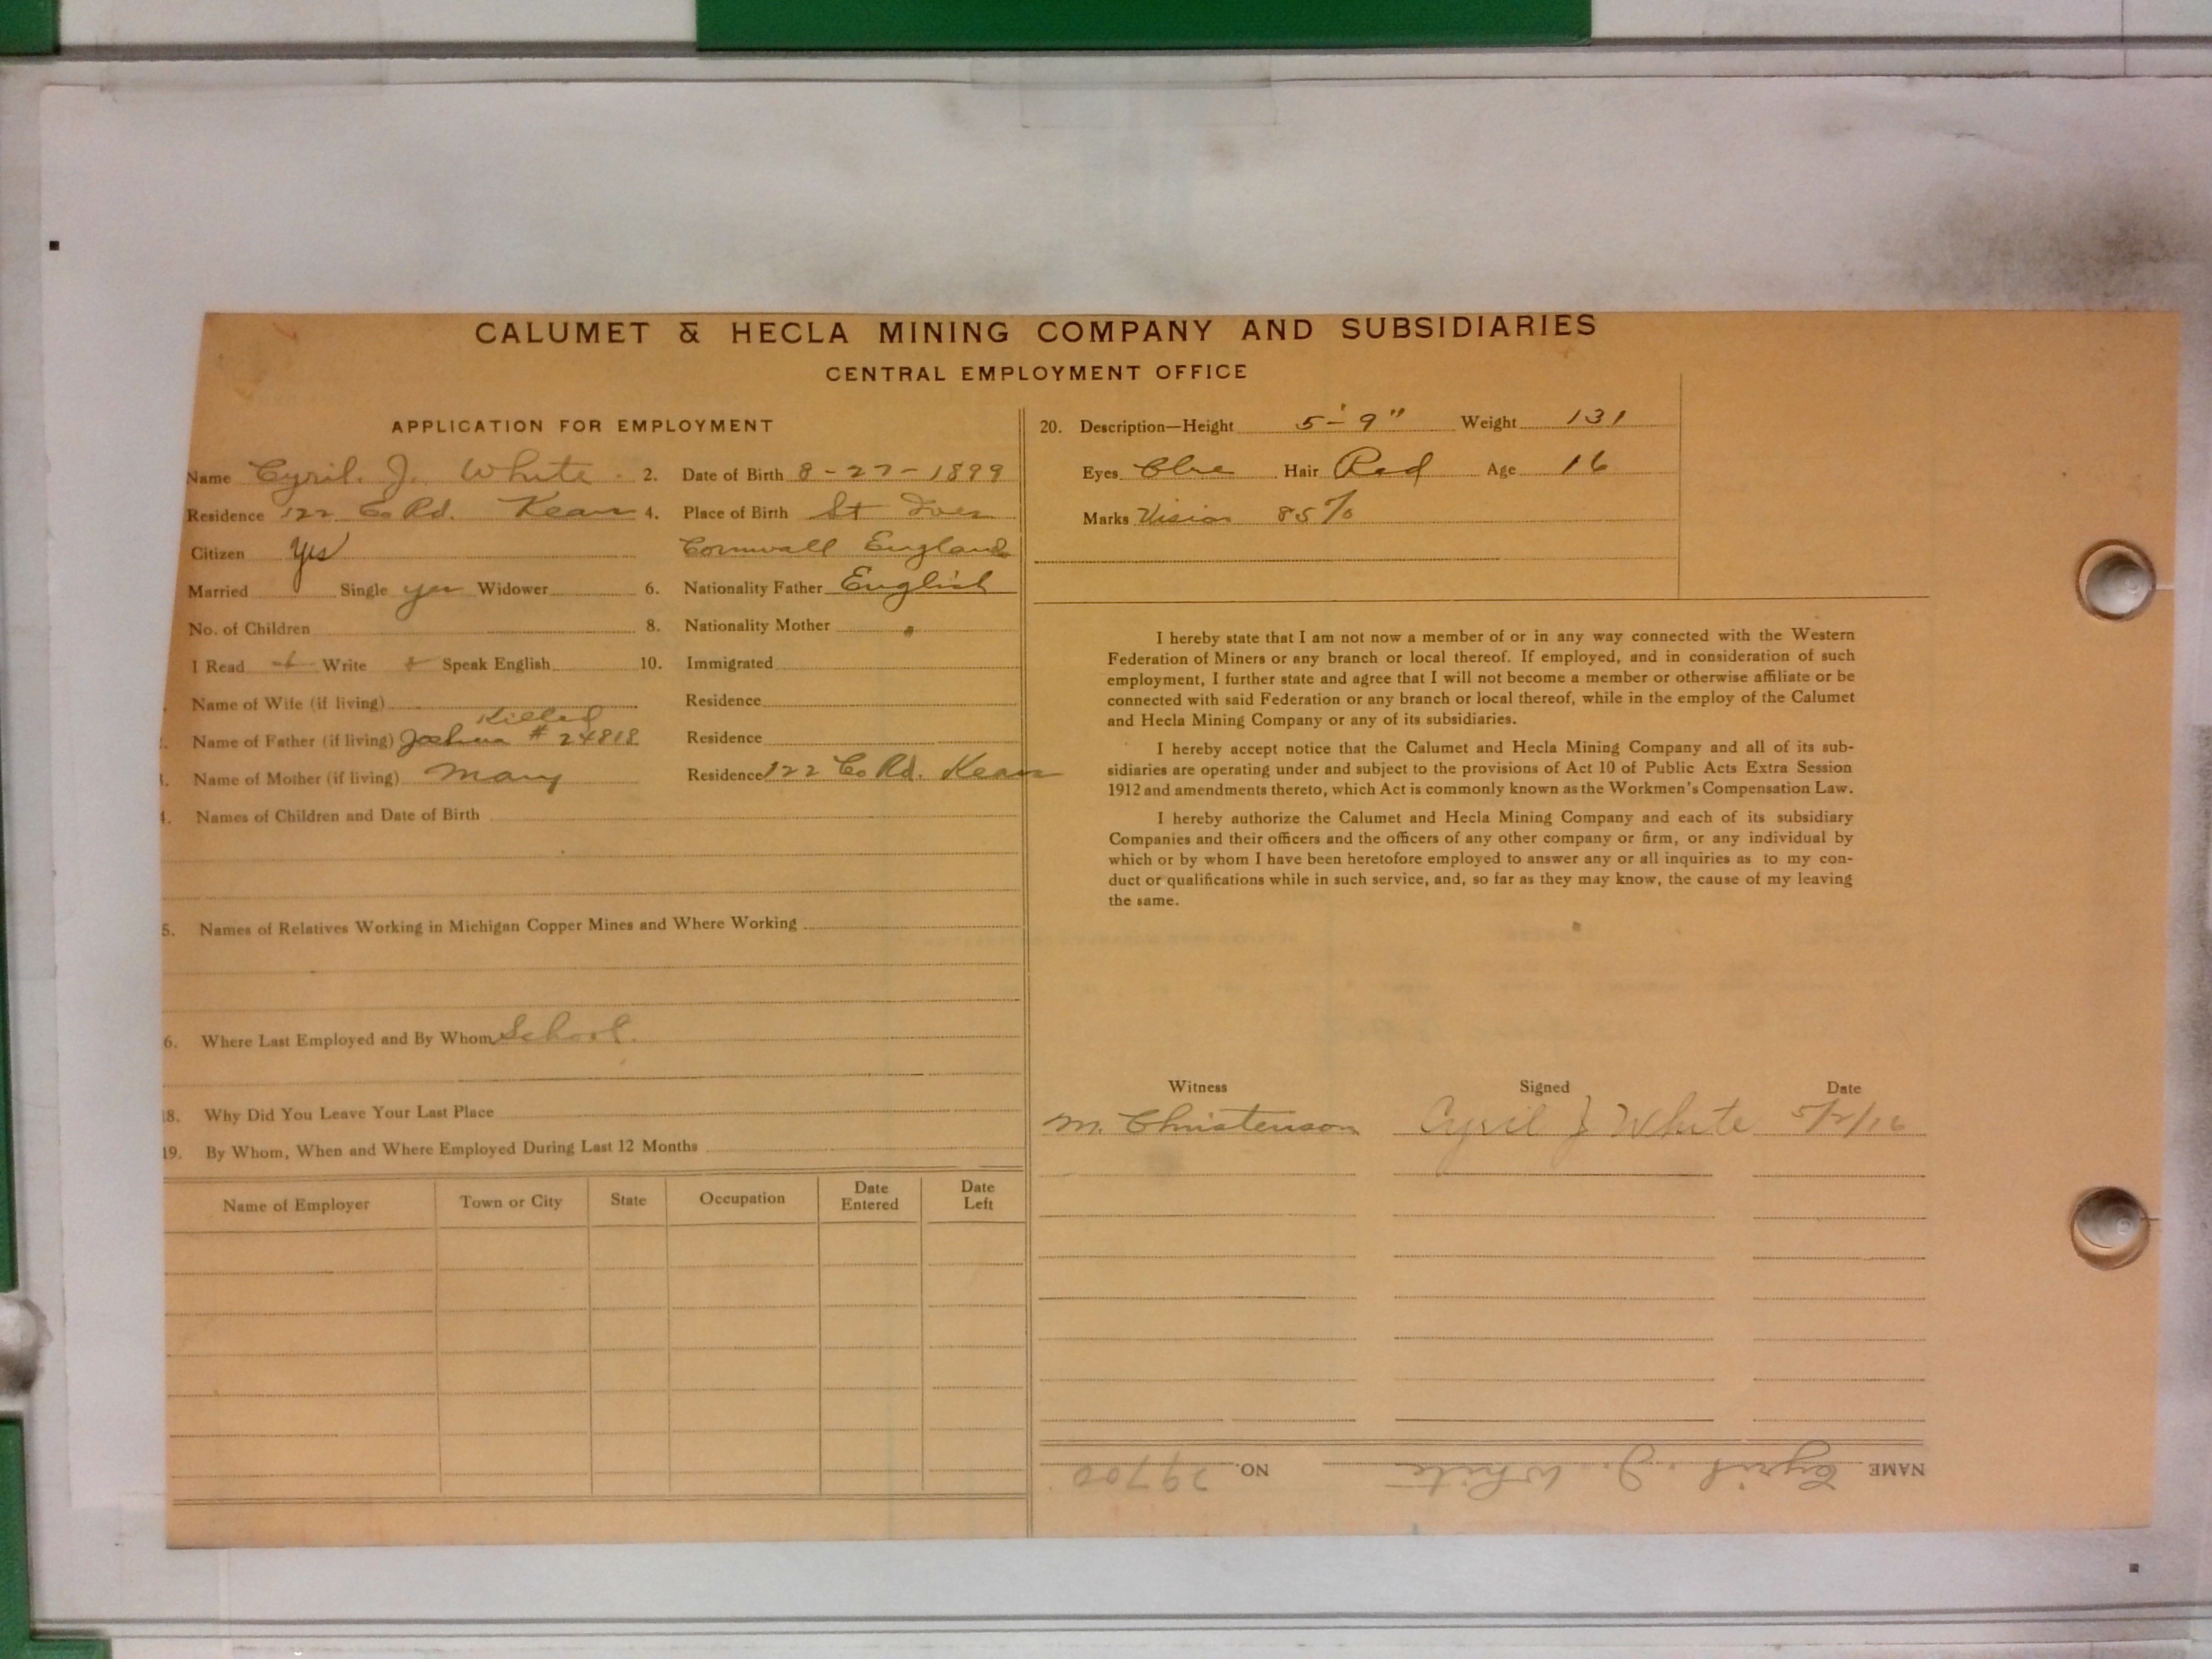 CALUMET & HECLA MINING COMPANY AND SUBSIDIARIES
CENTRAL EMPLOYMENT OFFICE
APPLICATION FOR EMPLOYMENT
Name Cyril. J. White 2. Date of Birth 8-27-1899
Residence 122 Co Rd. Kear 4. Place of Birth St Ives
Citizen Yes Cornwall England
Married Single yes Widower 6. Nationality Father English
No. of Children 8. Nationality Mother "
I Read + Write + Speak English 10. Immigrated
Name of Wife (if living) Residence
Killed
Name of Father (if living) Joshua # 24818 Residence
Name of Mother (if living) Mary Residence 122 Co Rd. Kear
4. Names of Children and Date of Birth
5. Names of Relatives Working in Michigan Copper Mines and Where Working
6. Where Last Employed and By Whom School.
18. Why Did You Leave Your Last Place
19. By Whom, When and Where Employed During Last 12 Months
Name of Employer Town or City State Occupation Date Entered Date Left
20. Description—Height 5'-9" Weight 131
Eyes Blue Hair Red Age 16
Marks Vision 85%
I hereby state that I am not now a member of or in any way connected with the Western
Federation of Miners or any branch or local thereof. If employed, and in consideration of such
employment, I further state and agree that I will not become a member or otherwise affiliate or be
connected with said Federation or any branch or local thereof, while in the employ of the Calumet
and Hecla Mining Company or any of its subsidiaries.
I hereby accept notice that the Calumet and Hecla Mining Company and all of its sub-
sidiaries are operating under and subject to the provisions of Act 10 of Public Acts Extra Session
1912 and amendments thereto, which Act is commonly known as the Workmen's Compensation Law.
I hereby authorize the Calumet and Hecla Mining Company and each of its subsidiary
Companies and their officers and the officers of any other company or firm, or any individual by
which or by whom I have been heretofore employed to answer any or all inquiries as to my con-
duct or qualifications while in such service, and, so far as they may know, the cause of my leaving
the same.
Witness Signed Date
M. Christenson Cyril J White 5/2/16
NAME Cyril. J. White NO. 29700